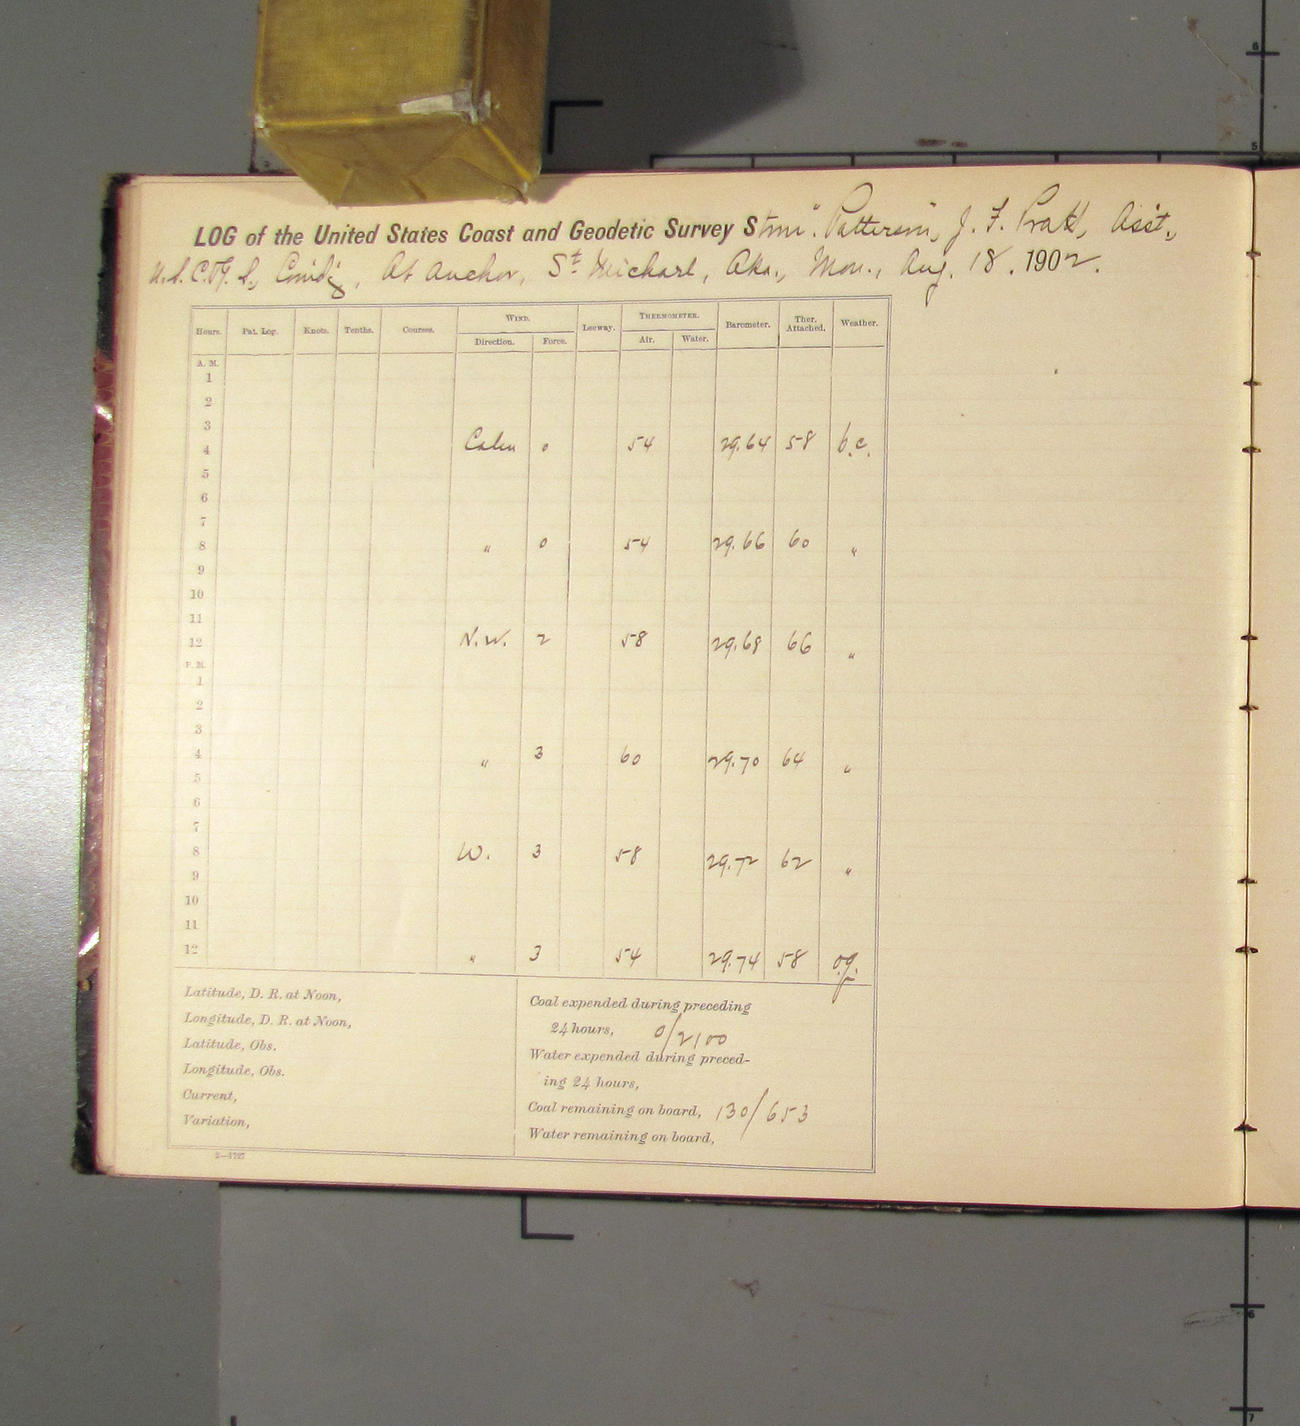 LOG of the United States Coast and Geodetic Survey Stmr. "Patterson", J. F. Pratt, Asst.,
U.S.C. & G. S., Comd'g, At anchor, St. Michael, Aka., Mon., Aug. 18. 1902.
Hours. Pat. Log. Knots. Tenths. Courses. WIND. Leeway. THERMOMETER. Barometer. Ther. Attached. Weather.
Direction. Force. Air. Water.
A. M.
1
2
3
4 Calm 0 54 29.64 58 b.c.
5
6
7
8 " 0 54 29.66 60 "
9
10
11
12 N.W. 2 58 29.68 66 "
P. M.
1
2
3
4 " 3 60 29.70 64 "
5
6
7
8 W. 3 58 29.72 62 "
9
10
11
12 " 3 54 29.74 58 o.g.
Latitude, D. R. at Noon,
Longitude, D. R. at Noon,
Latitude, Obs.
Longitude, Obs.
Current,
Variation,
Coal expended during preceding
24 hours, 0/2100
Water expended during preced-
ing 24 hours,
Coal remaining on board, 130/653
Water remaining on board,
2—1727
6
5
6
7